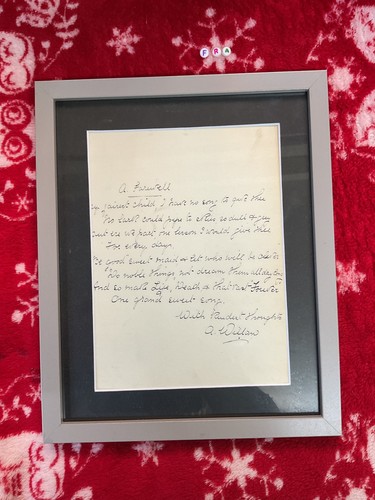 FRA
A Farewell
My fairest child, I have no song to give thee
No lark could pipe to skies so dull & grey
but ere we part one lesson I would give thee
For every day.
Be good sweet maid & let who will be clever
Do noble things not dream them all day long
And so make Life, Death & that vast Forever
One grand sweet song.
With fondest thoughts
A.